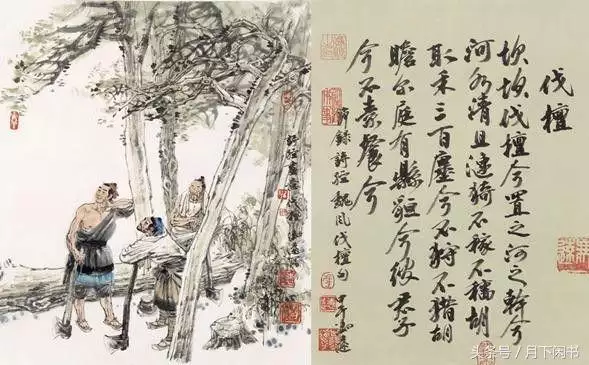 伐檀
坎坎伐檀兮置之河之幹兮
河水清且漣猗不稼不穡胡
取禾三百廛兮不狩不獵胡
瞻尔庭有縣貆兮彼君子
兮不素餐兮
節錄詩經魏風伐檀句
头条号 / 月下闲书